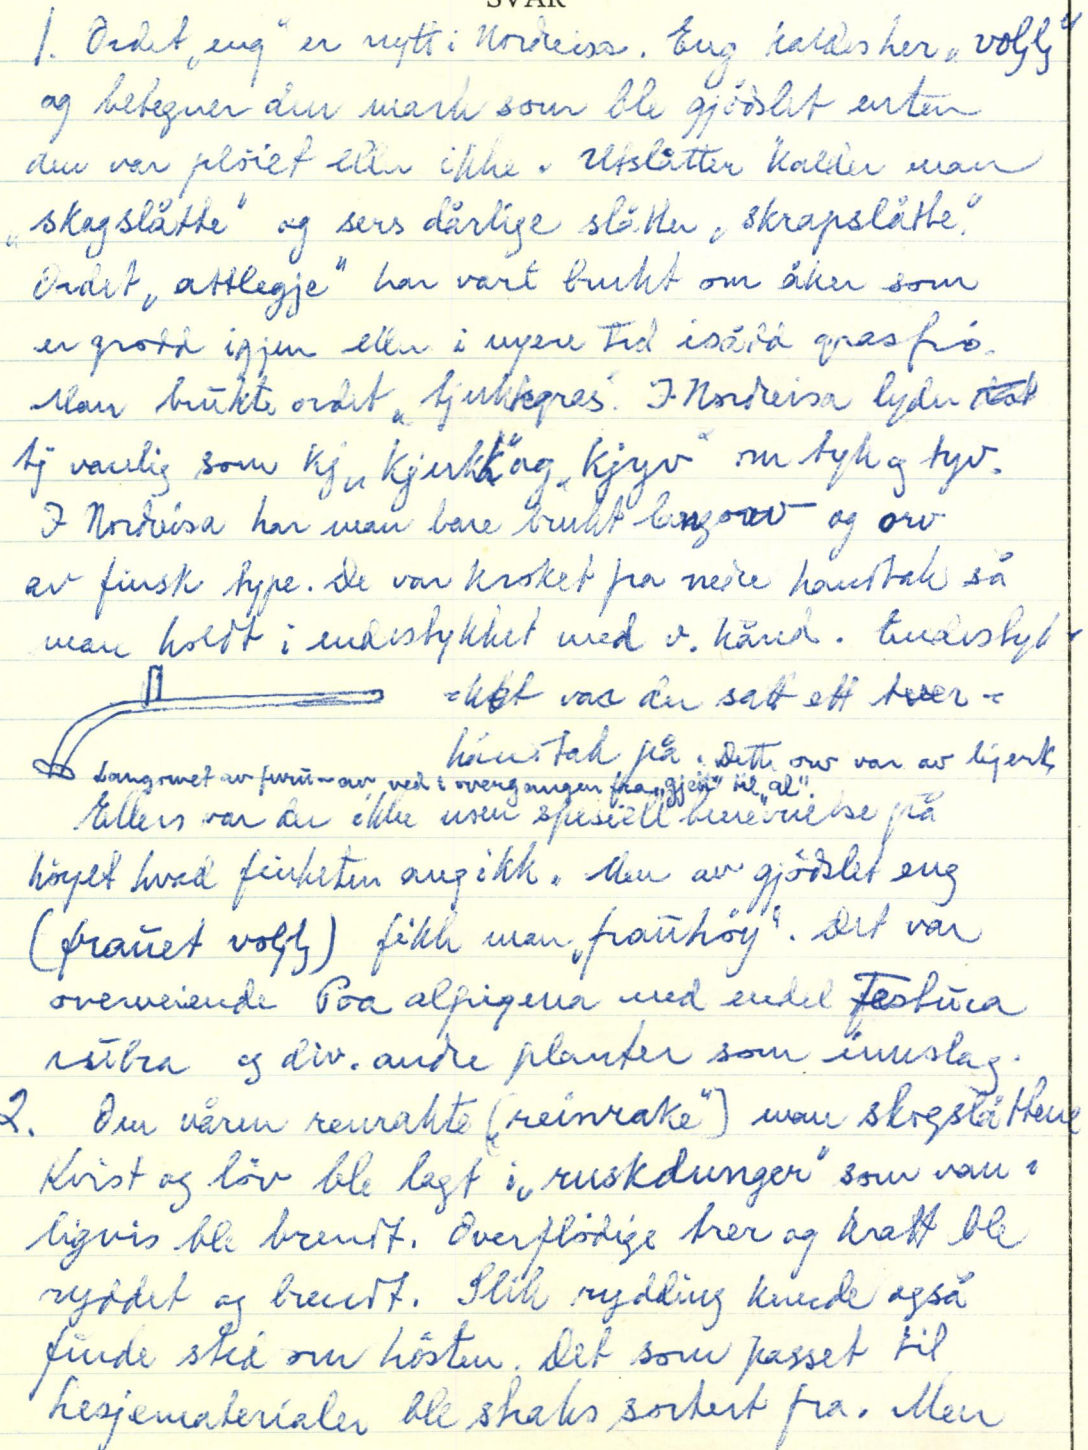 SVAR
1. Ordet „eng" er nytt i Nordreisa. Eng kaldes her „voljlj"
og betegner den mark som ble gjödslet enten
den var plöiet eller ikke. Utslåtter kalder man
„skogslåtte" og sers dårlige slåtter „skrapslåtte."
Ordet „attlegje" har vært brukt om åker som
er grodd igjen eller i nyere tid isådd grasfrö.
Man brukte ordet „tjukkgras". I Nordreisa lyder
tj vanlig som kj „kjukk" og „kjyv" om tyk og tyv.
I Nordreisa har man bare brukt langorv og orv
av finsk type. De var kroket fra nedre handtak så
man holdt i endestykket med v. hånd. Endestyk-
-ket var der satt ett tver-
håndtak på. Dette orv var av bjerk,
Langorvet av furu-av ved i overgangen fra „gjeit" til „al".
Ellers var der ikke noen spesiell benevnelse på
höyet hvad finheten angikk. Men av gjödslet eng
(frauet voljlj) fikk man „frauhöy". Det var
overveiende Poa alpigena med endel Festuca
rubra og div. andre planter som innslag.
2. Om våren renrakte („reinrake") man skogslåttene
Kvist og löv ble lagt i „ruskdunger" som van-
ligvis ble brendt. Overflödige trer og kratt ble
ryddet og brendt. Slik rydding kunde også
finde sted om hösten. Det som passet til
hesjematerialer ble straks sortert fra. Men